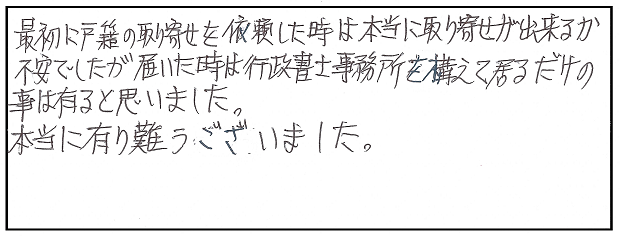 最初に戸籍の取り寄せを依頼した時は本当に取り寄せが出来るか
不安でしたが届いた時は行政書士事務所を構えて居るだけの
事は有ると思いました。
本当に有り難うございました。